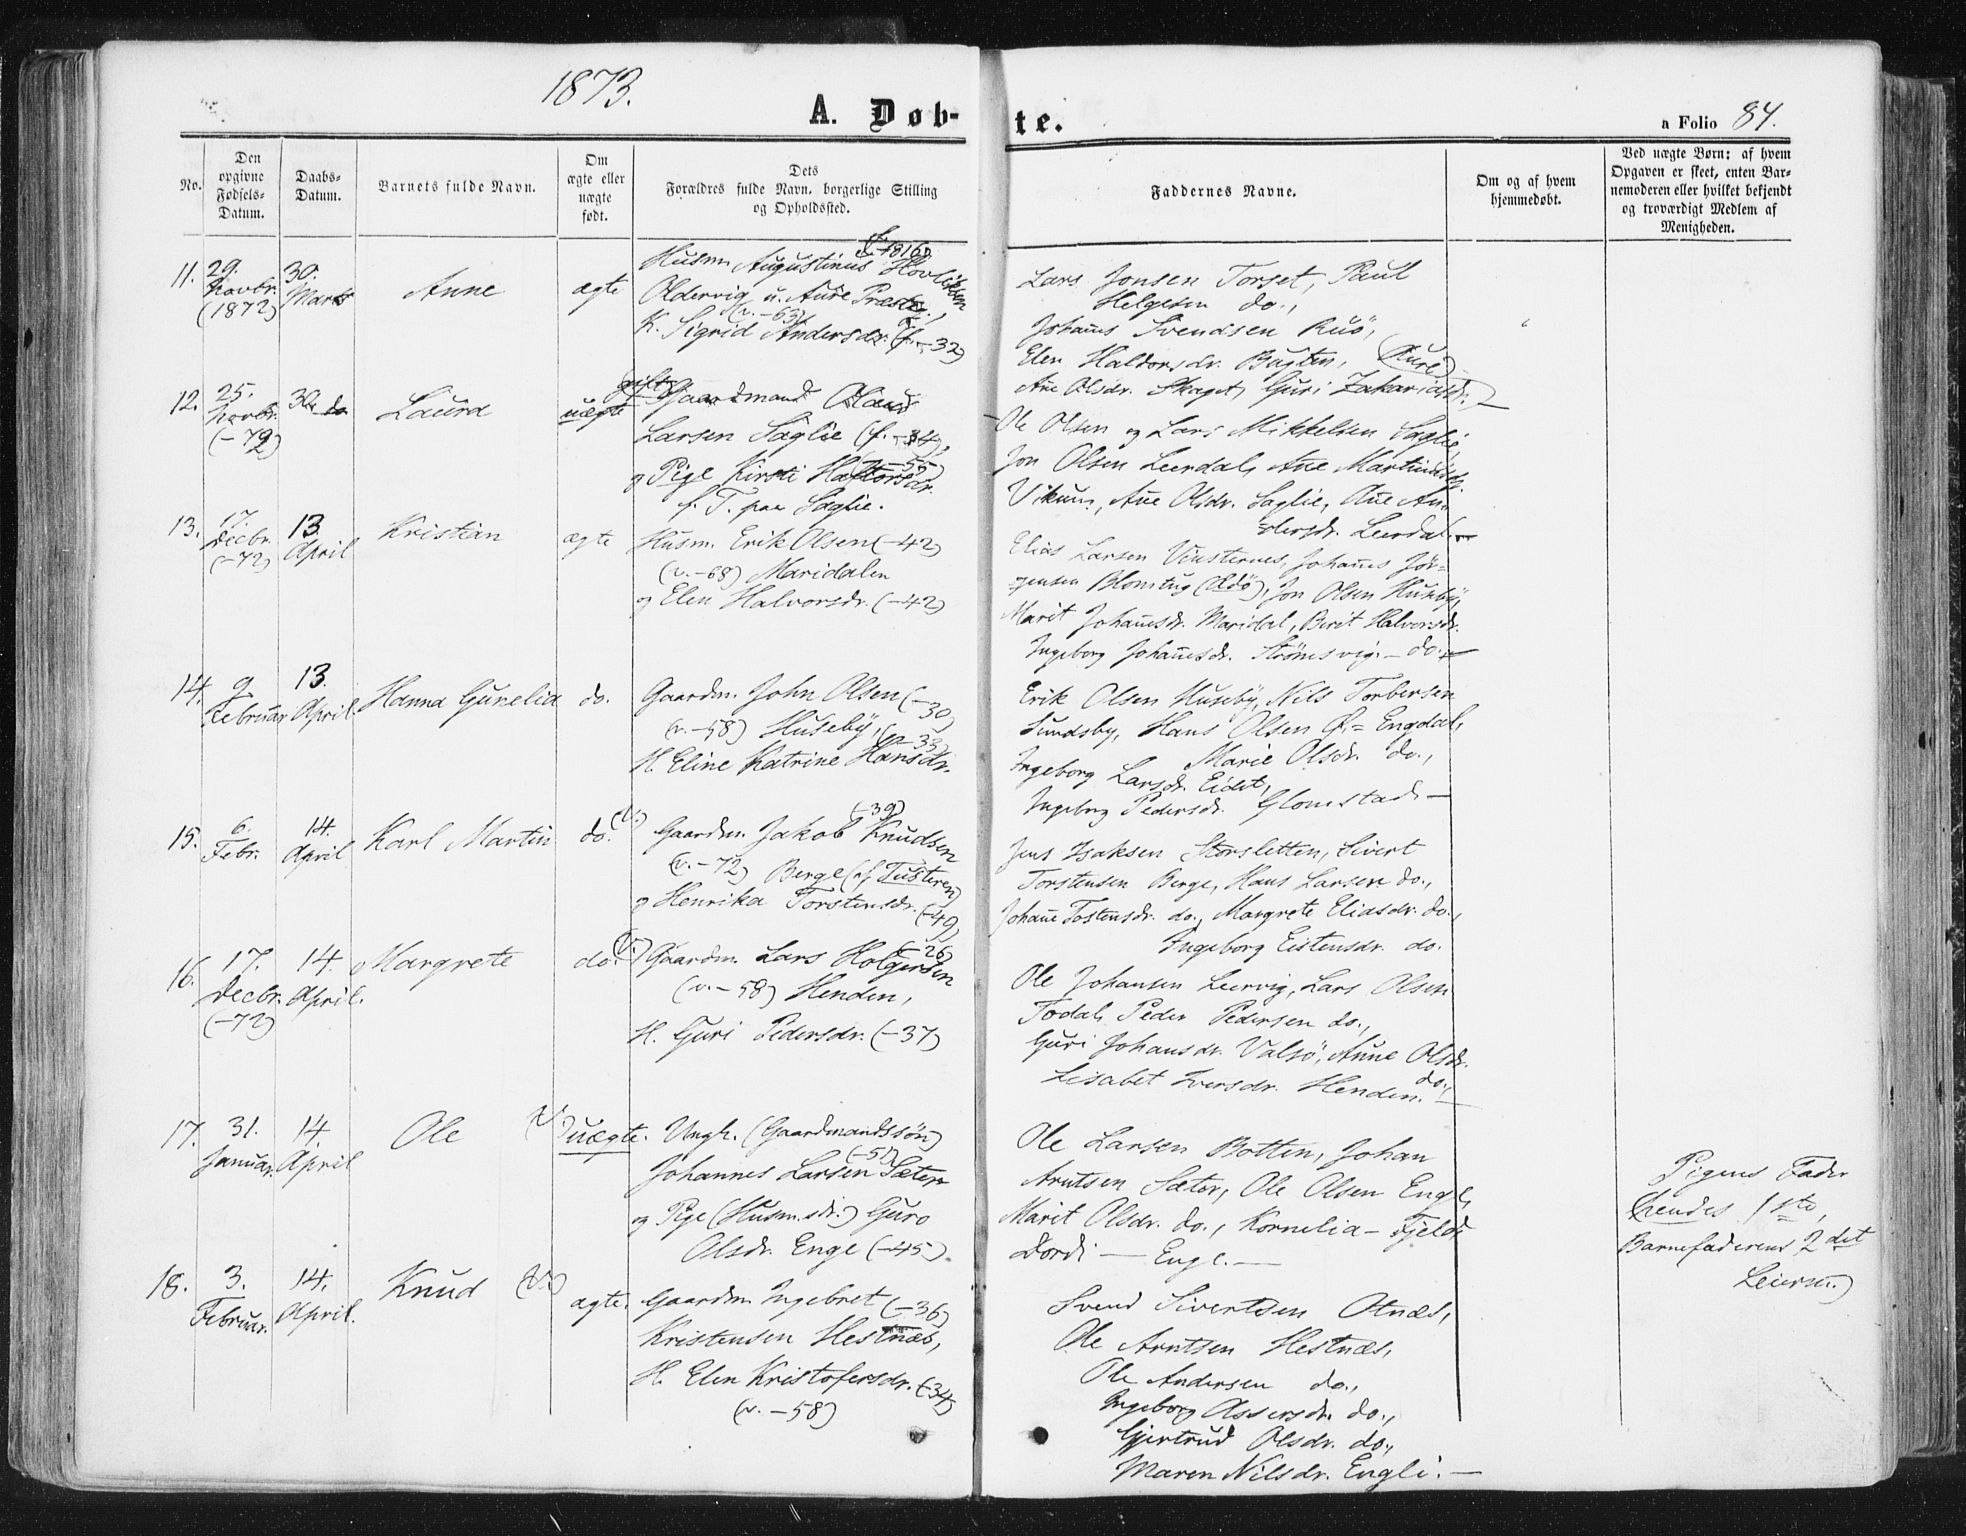 1873.
A. Døb-
te.
a Folio 84.
No.
Den
opgivne
Fødsels-
Datum.
Daabs-
Datum.
Barnets fulde Navn.
Om
ægte eller
uægte
født.
Dets
Forældres fulde Navn, borgerlige Stilling
og Opholdssted.
Faddernes Navne.
Om og af hvem
hjemmedøbt.
Ved uægte Børn: af hvem
Opgaven er skeet, enten Bar-
nemoderen eller hvilket bekjendt
og troværdigt Medlem af
Menigheden.
11.
29.
Novbr.
(1872)
30.
Marts
Anne
ægte
Husm. Augustinus
Oldervig u. Aure Præstg.,
(v. -63)
K. Sigrid Andersdr. (f. -32)
Lars Jonsen Torset, Paul
Helgesen do.,
Johañes Svendsen Ruø,
Elen Haldorsdr. Bugten, (Aure)
Añe Olsdr. Skaget, Guri Zakariasdr. —
12.
25.
Novbr.
(-72)
30. do
Laura
uægte
gift Gaardmand
Larsen Saglie (f. -34),
(-55)
og Pige Kirsti Haftorsdr.
f. T. paa Saglie.
Ole Olsen og Lars Mikkelsen Saglie,
Jon Olsen Leerdal, Añe
Vikum, Añe Olsdr. Saglie, Añe An-
dersdr. Leerdal. —
13.
17.
Decbr.
(-72)
13.
April
Kristian
ægte
Husm. Erik Olsen (-42)
(v. -68) Maridalen
og Elen Halvorsdr. (-42)
Elias Larsen Vinsternes, Johañes Jør-
gensen Blomtug (Edø), Jon Olsen Husby,
Marit Johañesdr. Maridal, Berit Halvorsdr.
Ingeborg Johañesdr. Strömsvig. — do. —
14.
9.
Februar
13.
April.
Hanna Gurelia
do.
Gaardm. John Olsen (-30)
(v. -58) Huseby, (-33)
H. Eline Katrine Hansdr.
Erik Olsen Huseby, Nils Torbersen
Sundsby, Hans Olsen Ø. = Engdal,
Marie Olsdr. do.,
Ingeborg Larsdr. Eidet,
Ingeborg Pedersdr. Glomstad. —
15.
6.
Febr.
14.
April
Karl Martin
do. (V.)
(-39)
Gaardm. Jakob Knudsen
(v. -72) Berge (af Tusteren)
og Henrika Torstensdr. (-49)
Jens Isaksen Storsletten, Sivert
Torstensen Berge, Hans Larsen do.,
Johañe Tostensdr. do., Margrete Eliasdr. do.,
Ingeborg Eistensdr. do.
16.
17.
Decbr.
(-72)
14.
April.
Margrete
do. (V.)
(-26)
Gaardm. Lars Holgersen
(v. -58) Henden,
H. Guri Pedersdr. (-37)
Ole Johansen Leervig, Lars Olsen
Todal, Peder Pedersen do.,
Guri Johansdr. Valsö, Anne Olsdr.
do.,
Lisabet Iversdr. Henden. —
17.
31.
Januar.
14.
April
Ole (V.)
uægte.
Ungk. (Gaardmandssøn)
(-51)
Johannes Larsen Sæter
og Pige (Husm.sdr.) Guro
Olsdr. Enge (-45).
Ole Larsen Botten, Johan
Arntsen Sæter, Ole Olsen Enge,
Marit Olsdr. do., Kornelia — Fjelde
Dordi — Enge. —
Pigens Fader
(hendes 1ste,
Barnefaderens 2det
Leierm.)
18.
3.
Februar.
14.
April.
Knud (V.)
ægte.
Gaardm. Ingebret (-36)
Kristensen Hestnæs,
H. Elen Kristofersdr. (-34)
(v. -58)
Svend Sivertsen Otnæs,
Ole Arntsen Hestnæs,
Ole Andersen do.,
Ingeborg Assersdr. do.,
Gjertrud Olsdr. do.,
Maren Nilsdr. Engli. —